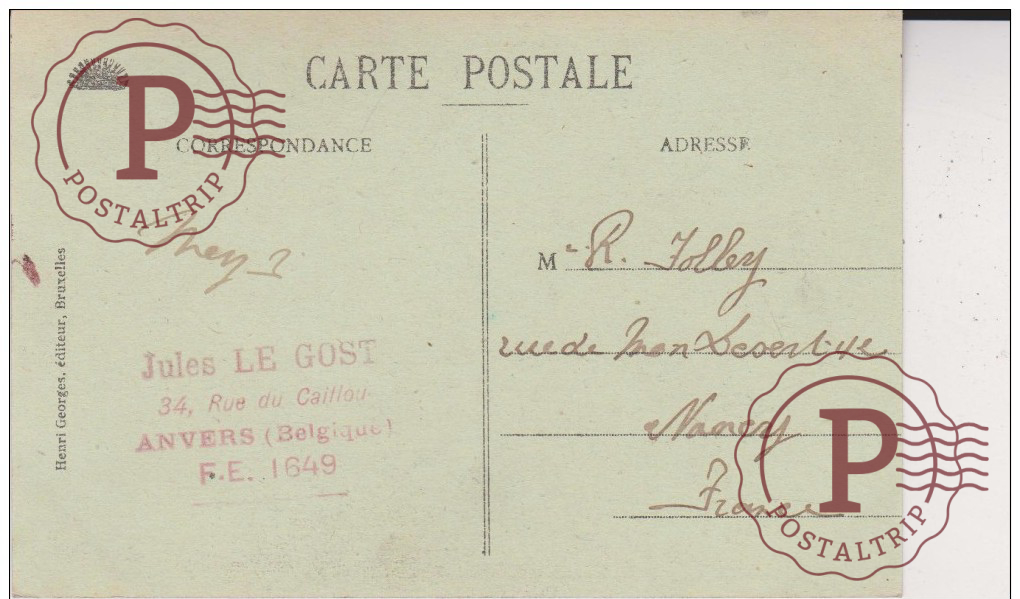 CARTE POSTALE
CORRESPONDANCE
ADRESSE
P
POSTALTRIP
Henri Georges, éditeur, Bruxelles
Jules LE GOST
34, Rue du Caillou
ANVERS (Belgique)
F.E. 1649
M r R. Jolley
rue de Mon Desert
Nancy
France
P
POSTALTRIP